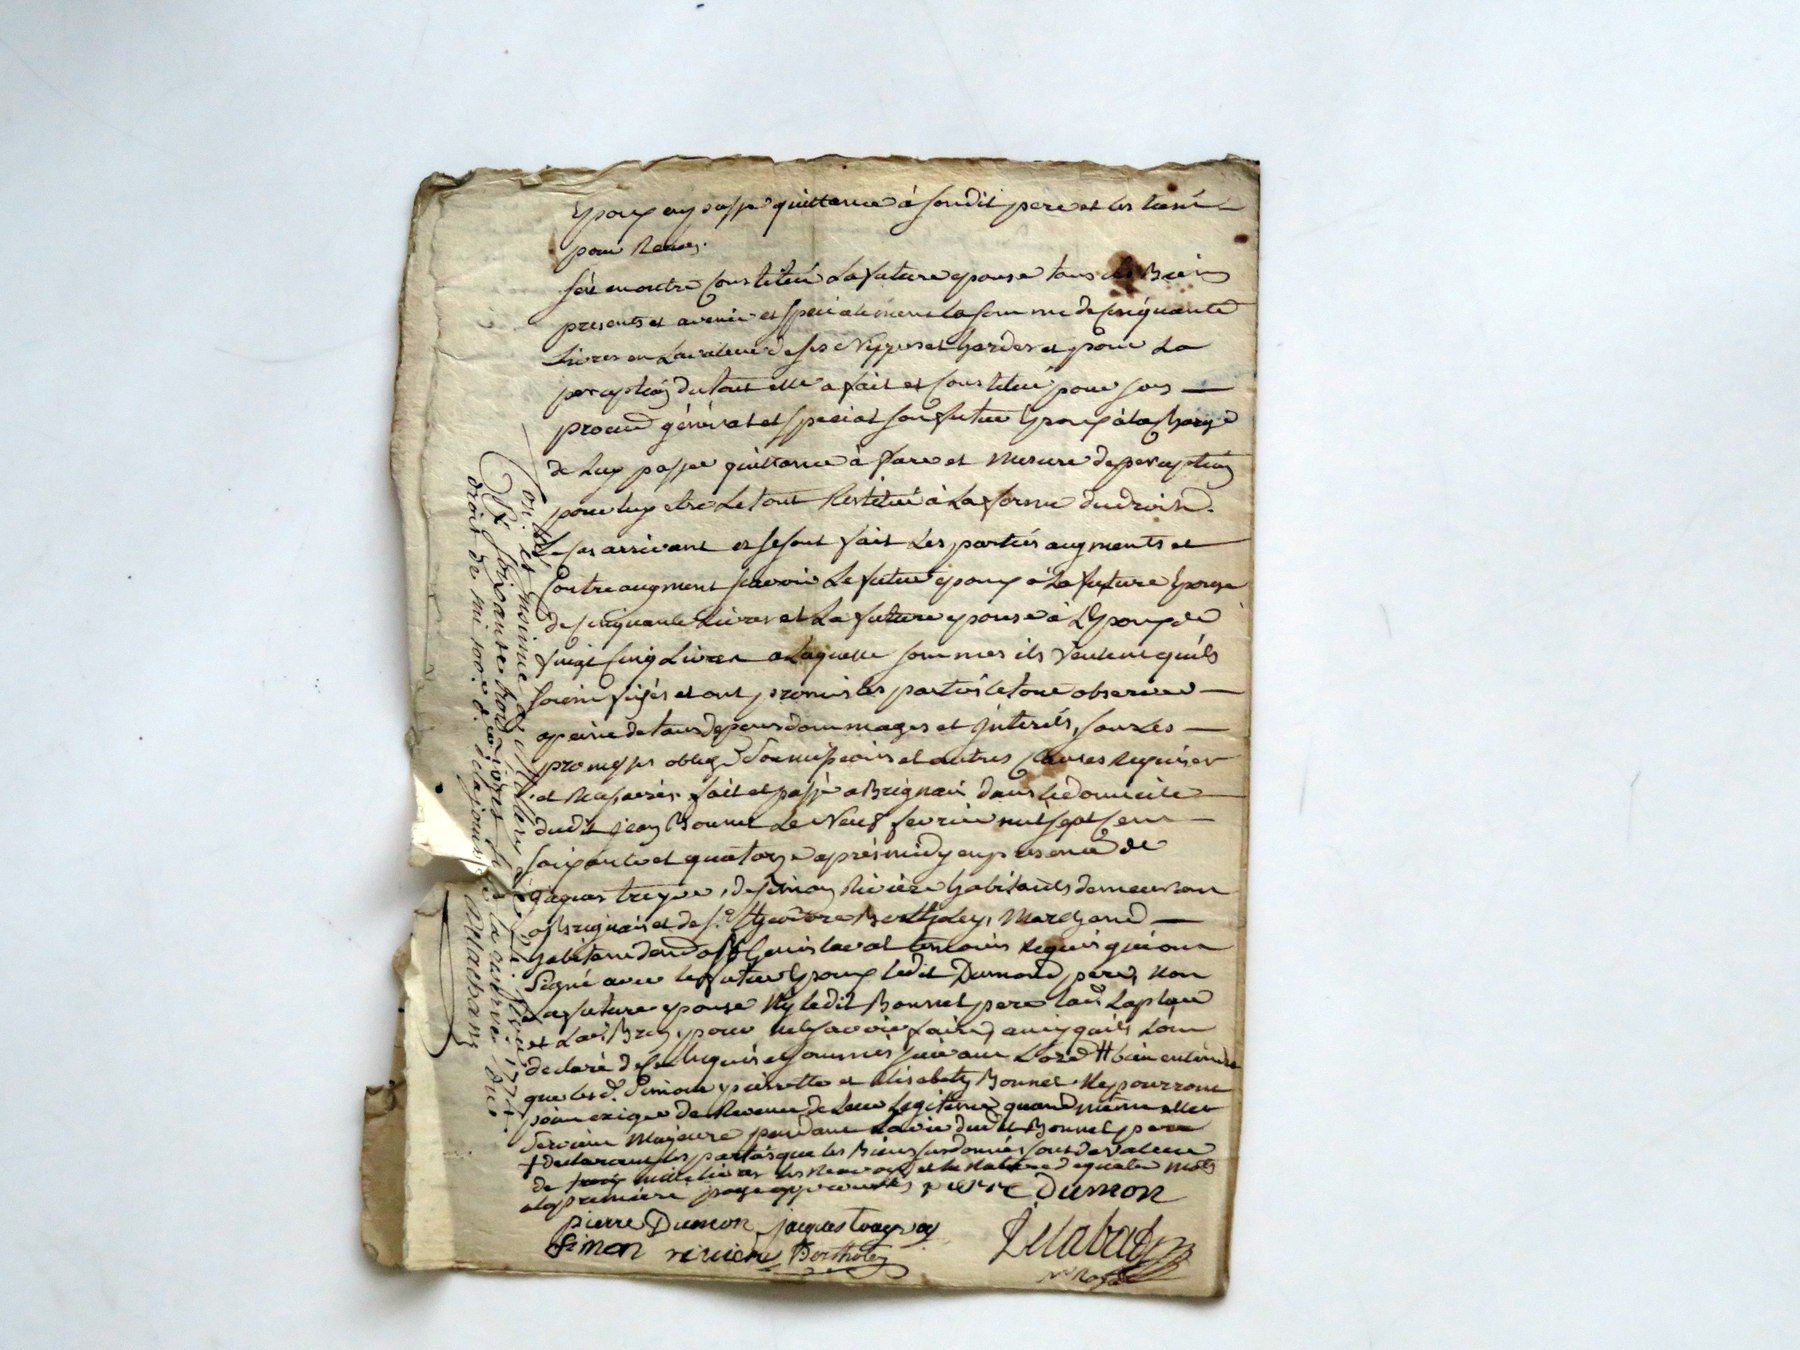 Epoux en passe quittance à sondit pere et les tient
pour Reçus.
sest en outre Constituée La future epouse tous ses Biens
presents et avenir et specialement La somme de Cinquante
Livres en La valeur de ses Nippes et hardes et pour La
perception du tout elle a fait et Constitué pour son
procur. général et special son futur Epoux à la Charge
de Luy passer quittance à fure et mesure de perception
pour luy etre Le tout Restitué à La forme du droit.
Le Cas arrivant se sont fait Les parties augments et
Contre augment savoir Le futur époux à La future Epouse
de Cinquante Livres et La future epouse à L'Epoux de
vingt Cinq Livres a Laquelle sommes ils veulent qu'ils
soient fixés et ont promis les parties le tout observer
apeine de tous depens dommages et Jnterets, sous Les
promesses oblig.
et autres Clauses requises
et fait et passé a Brignais dans le domicile
dudit jean Bonnet Le Neuf fevrier mil sept Cent
soixante et quatorze après midy en presence de
jaques treyve, de simon Rivière habitants demeurant
a Brignais et de s.r Bertholey, Marchand
habitant a st Genis laval temoins requis qui ont
signé avec le futur Epoux ledit Dumond pere, non
La future epouse Ny ledit Bonnet pere
pour ne savoir faire, ainsy qu'ils L'ont
declaré de Ce Enquis et sommés suivant L'ord # bien entendu
que les d. Simone pierrette et Elisabeth Bonnet Ne pourront
point exiger de Revenu de Leur Legitime quand même elles
seroient Majeure pendant La vie dudit Bonnet pere
+ declarant les parties que les Biens susdonnés sont de valeur
de mille livres
a la premiere page approuvés pierre Dumon
pierre Dumon jaques
Simon riviere Bertholey
Delabad
Con. lé et insinué à
droit de mi